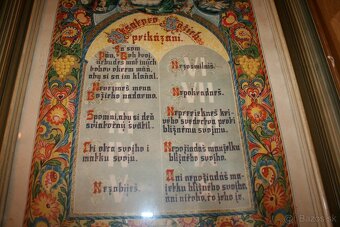 Desatoro Božích
prikázaní.
Ja som
Pán, Boh tvoj
nebudeš mať iných
bohov okrem mňa,
aby si sa im klaňal.
Nevezmeš mena
Božieho nadarmo.
Spomni, aby si deň
sviatočný svätil.
Cti otca svojho i
matku svoju.
Nezabiješ.
Nezosmilníš.
Nepokradneš.
Nepreriekneš kri-
vého svedectva proti
bližnému svojmu.
Nepožiadaš manželku
bližného svojho.
Ani nepožiadaš ma-
jetku bližného svojho,
ani ničoho, čo jeho je.
Bazos.sk